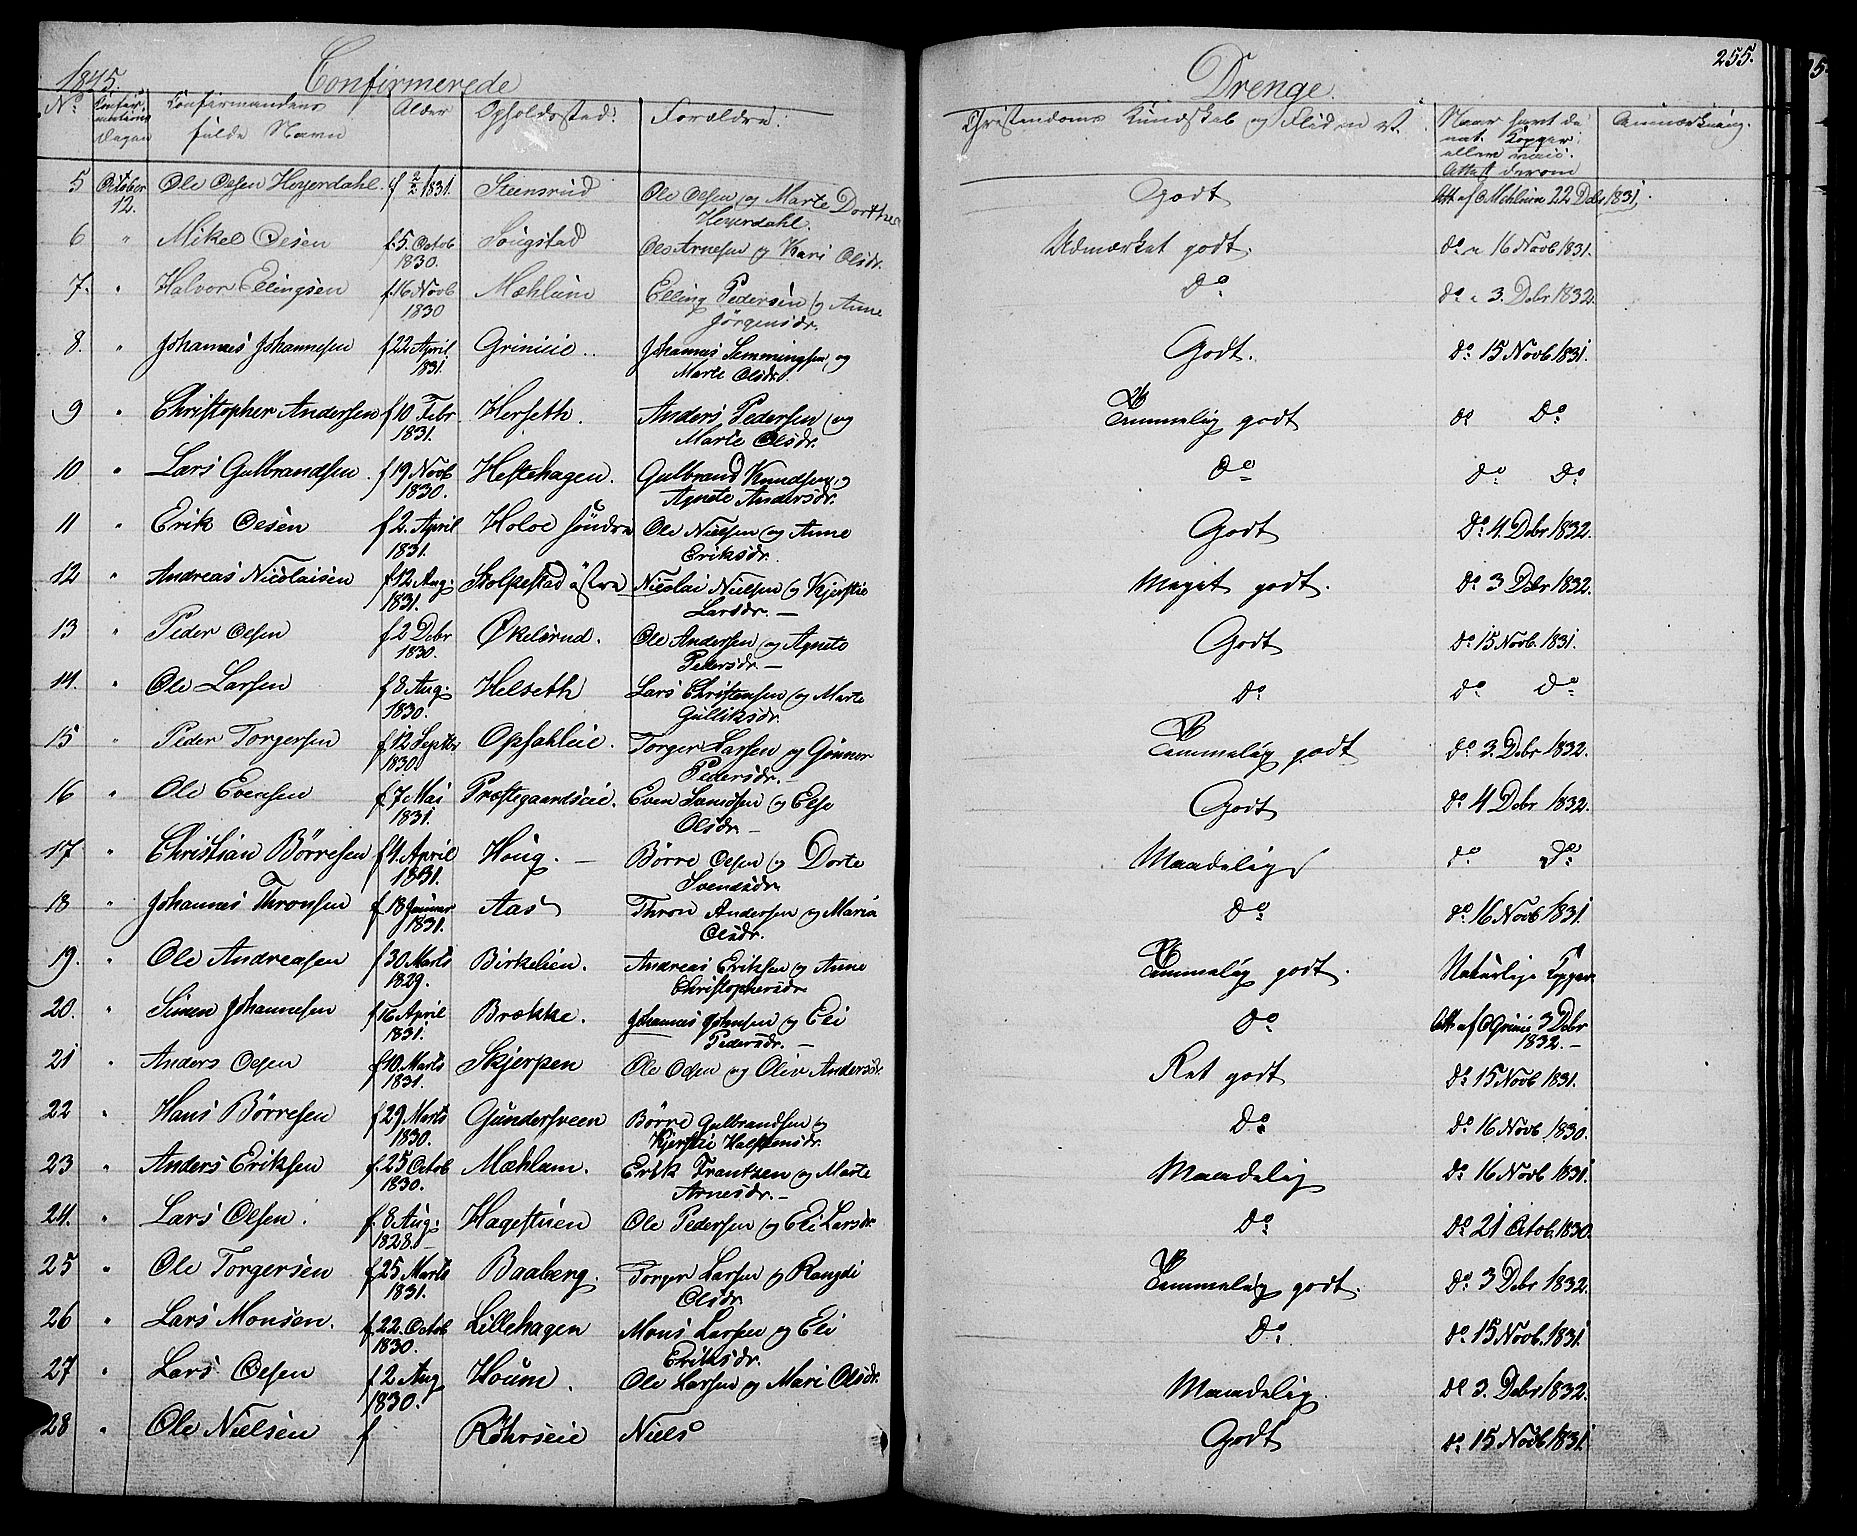 1845. Confirmerede Drenge. 255.
No Confirmations Dagen Confirmandens fulde Navn Alder Opholdssted. Forældre. Christendoms Kundskab og Flid m. v. Naar havt de nat. Kopper eller vacc. Attest derom Anmærkning.
5 October 12. Ole Olsen Heyerdahl. f 2/2 1831. Steensrud Ole Olsen og Marte Dorthea Heyerdahl. Godt Att. af O Mæhlum 22 Debr 1831.
6 " Mikel Olsen f. 5. Octob 1830. Sougstad Ole Arnesen og Kari Olsdr. Udmærket godt. do " 16 Novb 1831.
7. " Halvor Ellingsen f. 16 Novb 1830 Mæhlum Elling Pedersen og Anne Jörgensdr. do do " 3. Debr 1832.
8. " Johannes Johannesen f 22 April 1831. Griniie.. Johannes Semmingsen og Marte Olsdr. Godt. do 15 Novb. 1831.
9 " Christopher Andersen f 10 Febr 1831. Herseth. Anders Pedersen og Marte Olsdr. Temmelig godt do do
10. " Lars Gulbrandsen. f 19 Novb 1830. Heftehagen. Gulbrand Knudsen og Agnete Andersdr. do do do
11 " Erik Olsen f 2. April 1831. Holoe söndre Ole Nielsen og Anne Eriksdr. Godt do 4. Debr 1832.
12 " Andreas Nicolaisen f 12 Aug: 1831. Stolpestad östre Nicolai Nielsen og Kjerstie Larsdr. — Meget godt. do 3 Debr 1832.
13 " Peder Olsen f 2 Debr 1830. Økelsrud. Ole Andersen og Agnete Pedersdr. — Godt do 15 Novb. 1831.
14. " Ole Larsen f 8 Aug: 1830. Helseth Lars Christensen og Marte Gulliksdr. do do do
15 " Peder Torgersen f 12 Septbr 1830. Opsahleie. Torger Larsen og Gunnor Pedersdr. — Temmelig godt do 3. Debr 1832.
16 " Ole Evensen f 7 Mai 1831. Præstegaardseie. Even Knudsen og Else Olsdr. — Godt do 4 Debr 1832.
17. " Christian Börresen f 4. April 1831. Houg. — Börre Olsen og Dorte Svendsdr. Maadelig do do
18 " Johannes Thronsen f 18 Januar 1831. Aas Thron Andersen og Maria Olsdr. do do 16 Novb 1831.
19. " Ole Andreasen f 30 Marts 1829. Birkelien. Andreas Eriksen og Anne Christophersdr. Temmelig godt. Naturlige Kopper.
20. " Simen Johannesen f 16 April 1831. Brække. Johannes Johnsen og Eli Pedersdr. — do Att. af O Grini 3 Debr 1832. —
21 " Anders Olsen f 10 Marts 1831. Skjerpen Ole Olsen og Oliv Andersdr. Ret godt do 15 Novb 1831.
22 " Hans Börresen f 29 Marts 1830. Gundersveen Börre Gulbrandsen og Kjerstie Halstensdr. do do 16 Novb 1830.
23 " Anders Eriksen f. 25 Octob 1830. Mæhlum. Erik Frantzen og Marte Arnesdr. — Maadelig do 16 Novb 1831.
24. " Lars Olsen. f. 8 Aug: 1828. Hagestuen Ole Pedersen og Eli Larsdr. do do 21 Octob. 1830.
25 " Ole Torgersen f 25 Marts 1831. Baaberg. Torger Larsen og Rangdi Olsdr. Temmelig godt. do 3 Debr 1832.
26 " Lars Monsen. f. 22. Octob 1830. Lillehagen Mons Larsen og Eli Eriksdr. do. do 15 Novb. 1831.
27 " Lars Olsen f 2 Aug 1830. Houm. Ole Larsen og Mari Olsdr. Maadelig. do 3. Debr 1832.
28 " Ole Nielsen f Röhrseie Niels Godt do 15 Novb 1831.